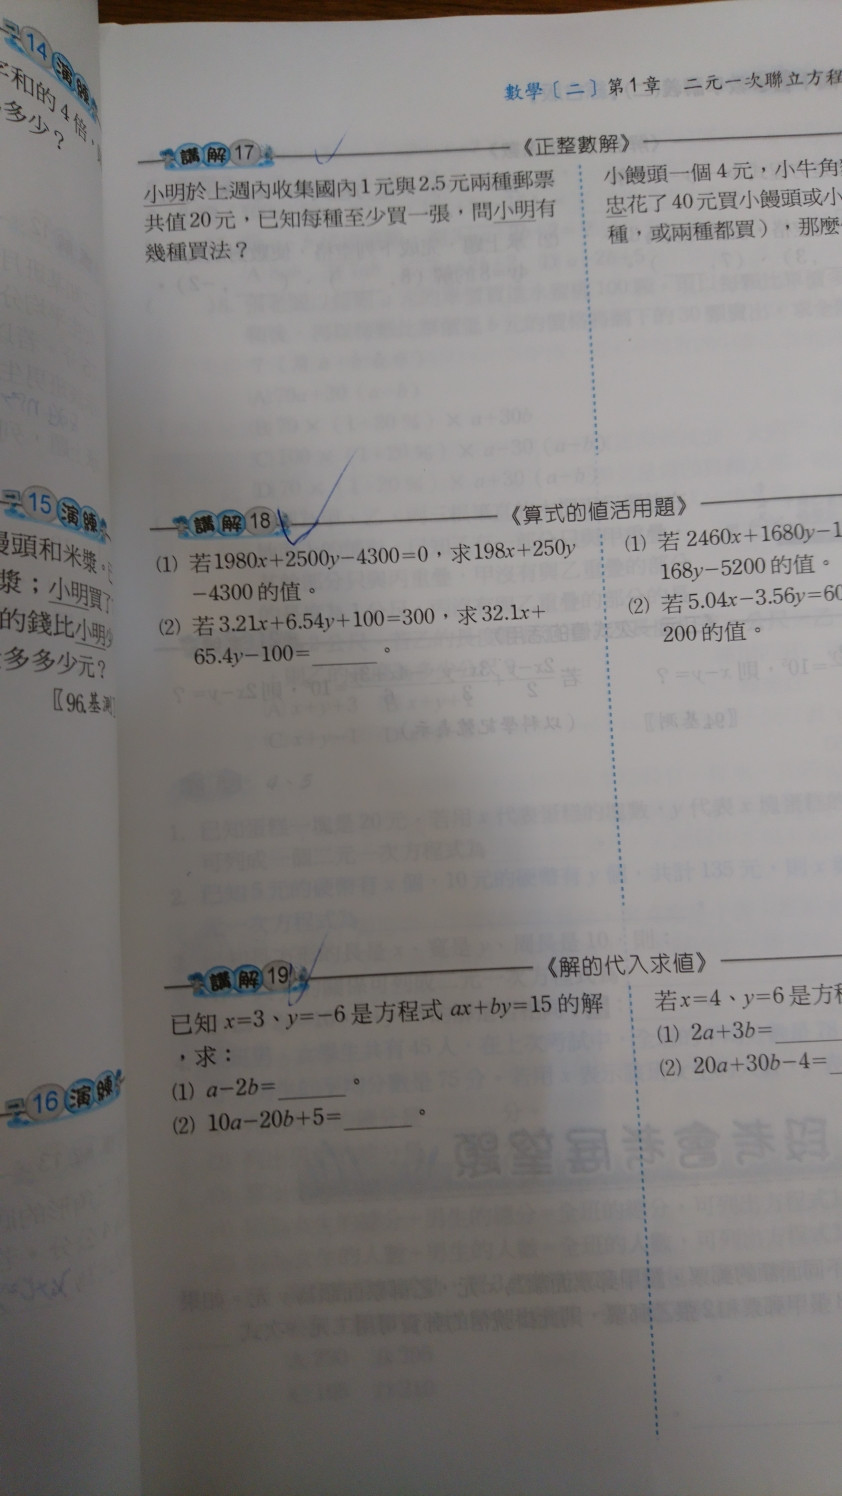 14 演練
和的4倍,
多少?
數學〔二〕第1章 二元一次聯立方程
講解17 《正整數解》
小明於上週內收集國內1元與2.5元兩種郵票
共值20元,已知每種至少買一張,問小明有
幾種買法?
小饅頭一個4元,小牛角
忠花了40元買小饅頭或小
種,或兩種都買),那麼
15 演練
饅頭和米漿。
漿;小明買了
的錢比小明少
多多少元?
〖96.基測〗
講解18 《算式的值活用題》
(1) 若1980x+2500y−4300=0,求198x+250y
−4300的值。
(2) 若3.21x+6.54y+100=300,求32.1x+
65.4y−100=______。
(1) 若2460x+1680y−1
168y−5200的值。
(2) 若5.04x−3.56y=60
200的值。
講解19 《解的代入求值》
已知x=3、y=−6是方程式ax+by=15的解
,求:
(1) a−2b=______。
(2) 10a−20b+5=______。
若x=4、y=6是方程
(1) 2a+3b=______
(2) 20a+30b−4=
16 演練